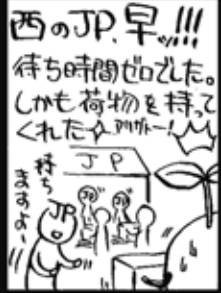 西のJP、早ッ!!!
待ち時間ゼロでした。
しかも荷物を持って
くれた☆ アリガトー!
JP
持ち
ますよ〜
JP